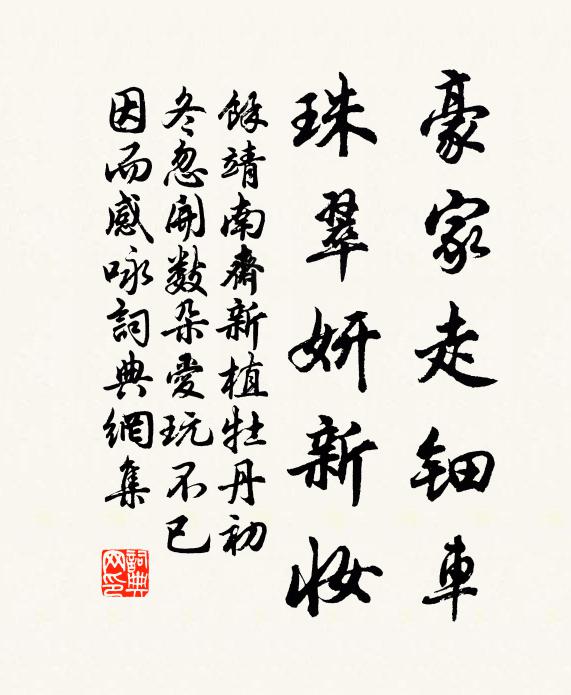 豪家走钿車
珠翠妍新妝
餘靖南齋新植牡丹初
冬忽開數朵愛玩不已
因而感咏詞典網集
詞典網印